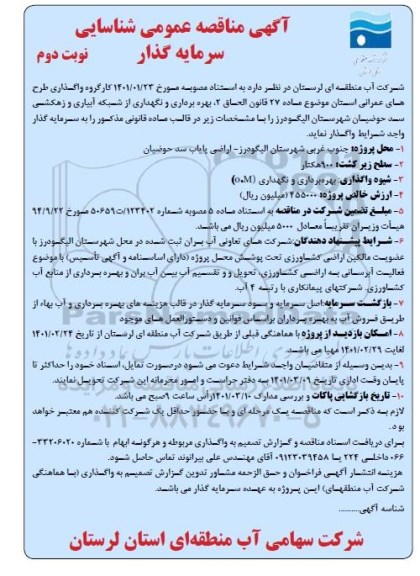 آگهی مناقصه عمومی شناسایی
سرمایه گذار
نوبت دوم
شرکت آب منطقه ای لرستان در نظر دارد به استناد مصوبه مورخ ۱۴۰۱/۰۱/۲۳ کارگروه واگذاری طرح
های عمرانی استان موضوع ماده ۲۷ قانون الحاق ۲، بهره برداری و نگهداری از شبکه آبیاری و زهکشی
سد حوضیان شهرستان الیگودرز را با مشخصات زیر در قالب ماده قانونی مذکور را به سرمایه گذار
واجد شرایط واگذار نماید.
۱- محل پروژه: جنوب غربی شهرستان الیگودرز- اراضی پایاب سد حوضیان
۲- سطح زیر کشت: ۹۰۰هکتار
۳- شیوه واگذاری: بهره‌برداری و نگهداری (o&M)
۴- ارزش خالص پروژه: ۴۵۵۰۰۰ (میلیون ریال)
۵- مبلغ تضمین شرکت در مناقصه به استناد ماده ۵ مصوبه شماره ۱۲۳۴۰۲/ت۵۰۶۵۹ مورخ ۹۴/۹/۲۲
هیأت وزیران تقریباً معادل ۵۰۰۰ میلیون ریال می باشد.
۶- شرایط پیشنهاد دهندگان: شرکت های تعاونی آب بران ثبت شده در محل شهرستان الیگودرز با
عضویت مالکین اراضی کشاورزی تحت پوشش محل پروژه (دارای اساسنامه و آگهی تأسیس) با موضوع
فعالیت آبرسانی به اراضی کشاورزی، تحویل و و تقسیم آب بین آب بران و بهره برداری از منابع آب
کشاورزی. شرکتهای پیمانکاری با رتبه ۴ آب.
۷- بازگشت سرمایه: اصل سرمایه و سود سرمایه گذار در قالب هزینه های بهره برداری و آب بهاء از
طریق فروش آب به بهره برداران براساس قوانین و دستورالعمل های موجود
۸- امکان بازدید از پروژه با هماهنگی قبلی از طریق شرکت آب منطقه ای لرستان از تاریخ ۱۴۰۱/۰۲/۲۴
لغایت ۱۴۰۱/۰۲/۲۹ مهیا می باشد.
۹- بدین وسیله از متقاضیان واجد شرایط دعوت می شود درصورت تمایل، اسناد خود را حداکثر تا
پایان وقت اداری تاریخ ۱۴۰۱/۰۳/۰۹ به دفتر حراست و امور محرمانه این شرکت تحویل نمایند.
۱۰- تاریخ بازگشایی پاکات و بررسی مدارک ۱۴۰۱/۰۳/۱۰رأس ساعت ۹صبح می باشد.
لازم به ذکر است که مناقصه یک مرحله ای و با حضور حداقل یک شرکت کننده هم معتبر خواهد
بود.
برای دریافت اسناد مناقصه و گزارش تصمیم به واگذاری مربوطه و هرگونه ابهام با شماره ۳۳۲۰۶۰۲۰-
۰۶۶ داخلی ۲۲۴ یا ۰۹۱۲۳۰۳۹۴۵۸ آقای مهندس علی بیرانوند تماس حاصل شود.
هزینه انتشار آگهی فراخوان و حق الزحمه مشاور تدوین گزارش تصمیم به واگذاری (با هماهنگی
شرکت آب منطقه‌ای) این پروژه به عهده سرمایه گذار می باشد.
شناسه آگهی..........
شرکت سهامی آب منطقه‌ای استان لرستان